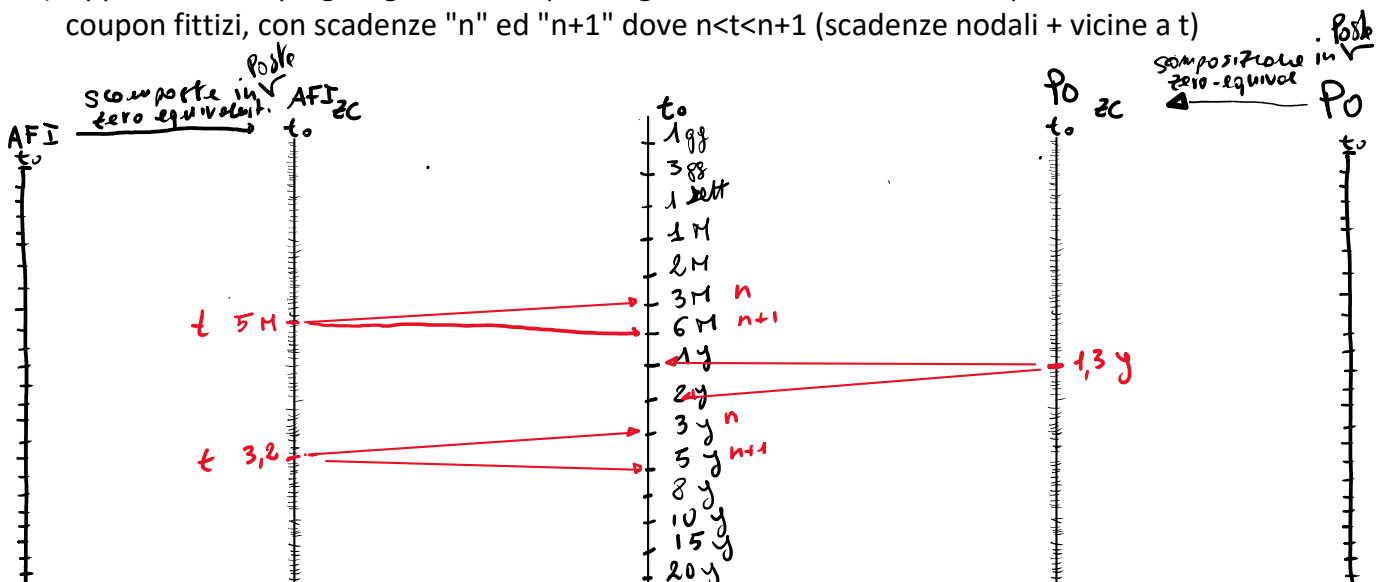 coupon fittizi, con scadenze "n" ed "n+1" dove n<t<n+1 (scadenze nodali + vicine a t)
AFI
t₀
scomposte in Poste
zero equivalenti
AFI ZC
t₀
t₀
1gg
3gg
1 sett
1 M
2M
3M n
6M n+1
1y
2y
3y n
5y n+1
8y
10y
15y
20y
t 5M
t 3,2
PO ZC
t₀
1,3 y
scomposizione in Poste
zero-equival
PO
t₀